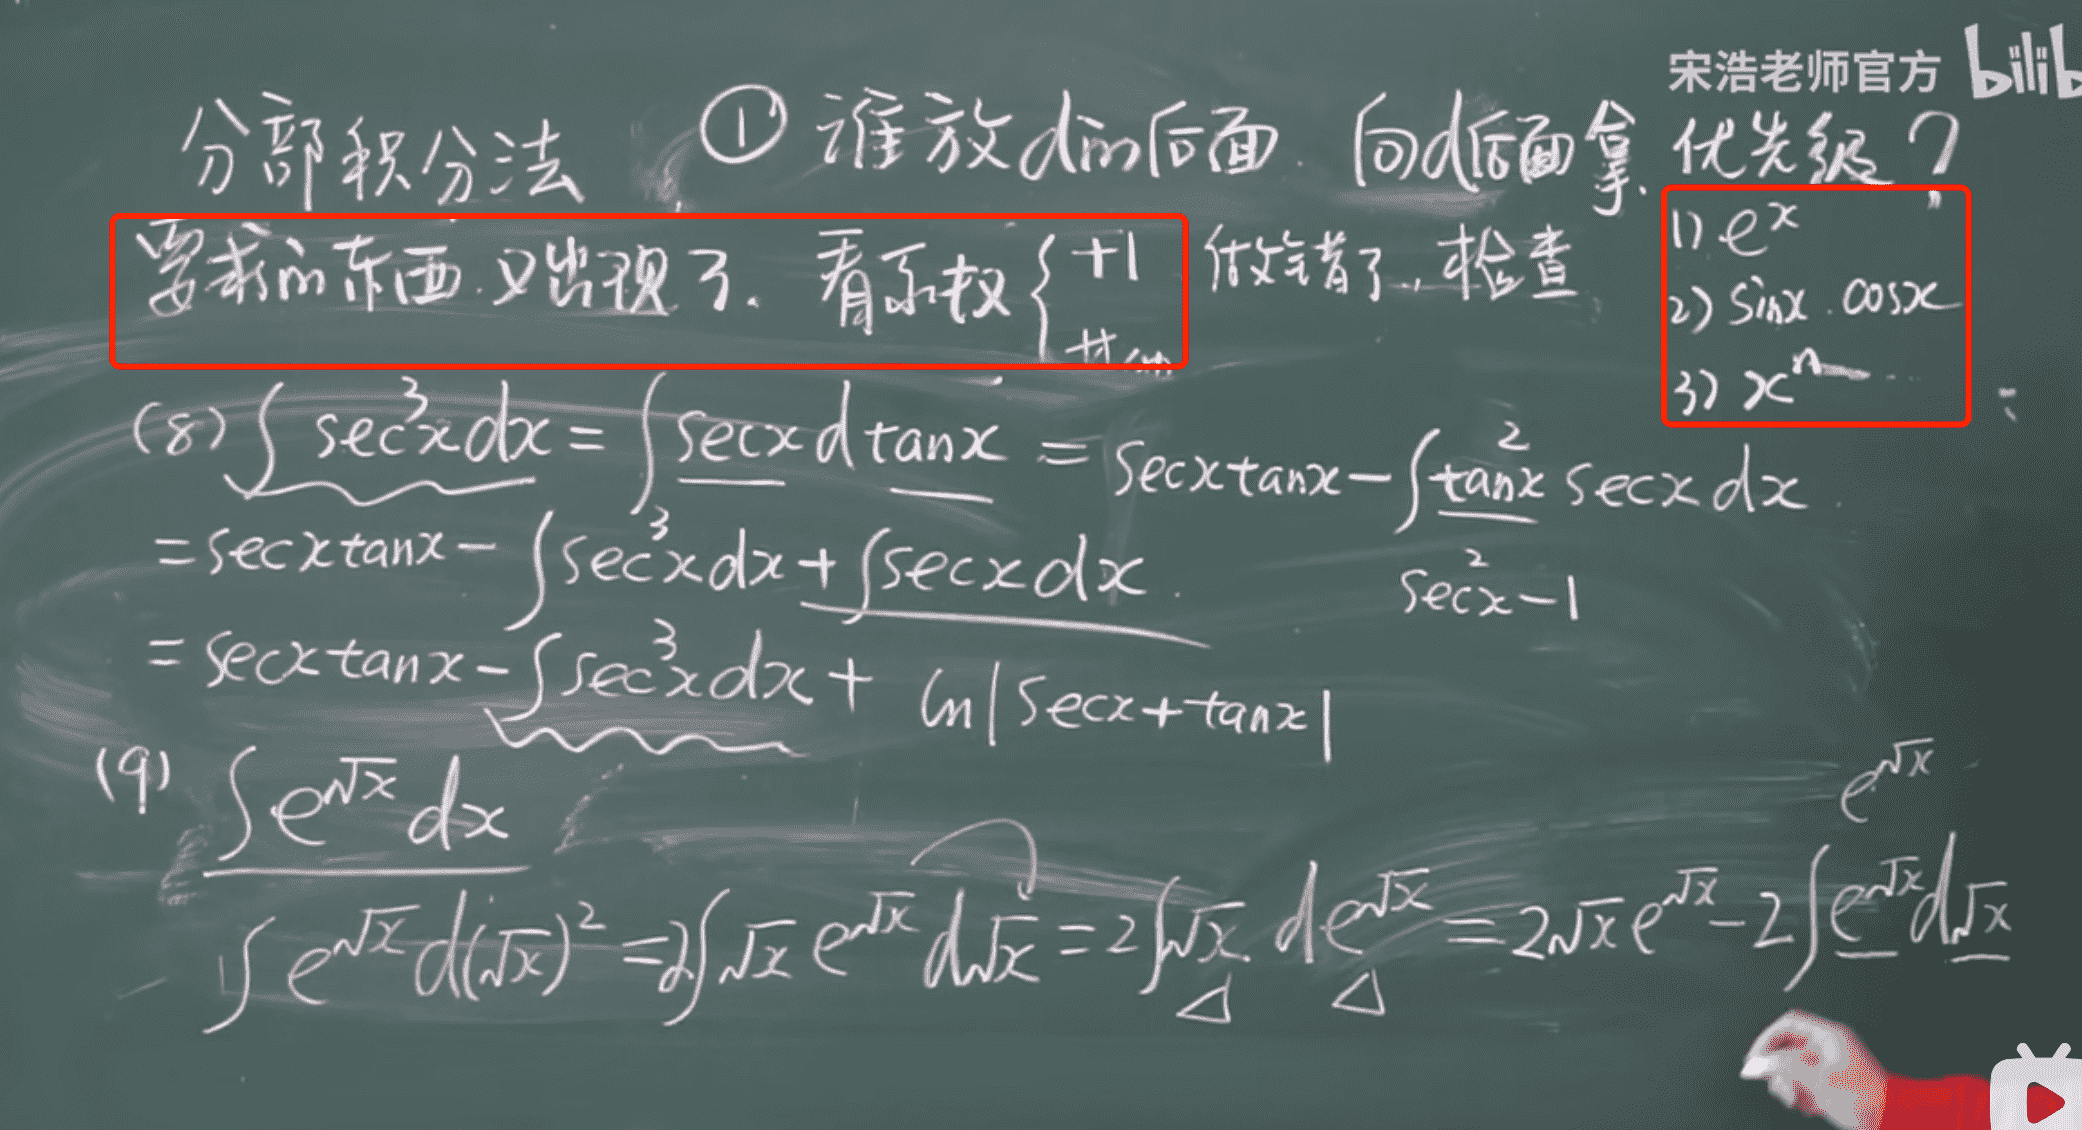 宋浩老师官方 bilib
分部积分法 ① 谁放d的后面. 向d后面拿. 优先级?
要求的东西.又出现了. 看系数 { +1 做错了, 检查
其他
1) e^x
2) sinx . cosx
3) x^n ...
(8) ∫ sec³x dx = ∫ secx d tanx = secxtanx - ∫ tan²x secx dx.
= secxtanx - ∫ sec³x dx + ∫ secx dx. sec²x-1
= secxtanx - ∫ sec³x dx + ln|secx+tanx|
(9) ∫ e^√x dx
e^√x
∫ e^√x d(√x)² = 2∫ √x e^√x d√x = 2∫ √x d e^√x = 2√x e^√x - 2∫ e^√x d√x